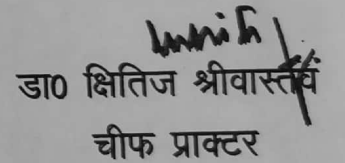 डा0 क्षितिज श्रीवास्तव
चीफ प्राक्टर